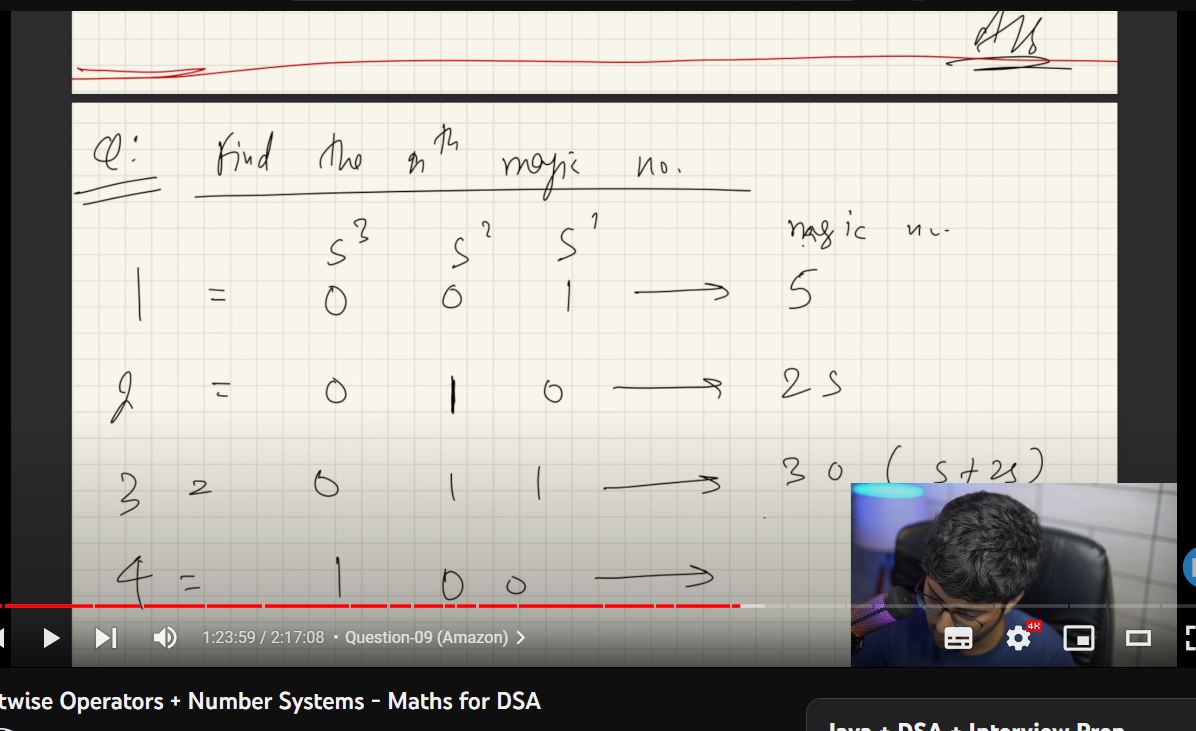 Ans
Q: Find the nth magic no.
5³ 5² 5¹ magic no.
1 = 0 0 1 → 5
2 = 0 1 0 → 25
3 = 0 1 1 → 30 (5+25)
4 = 1 0 0 →
4K
1:23:59 / 2:17:08 • Question-09 (Amazon) >
twise Operators + Number Systems - Maths for DSA
Java + DSA + Interview Prep